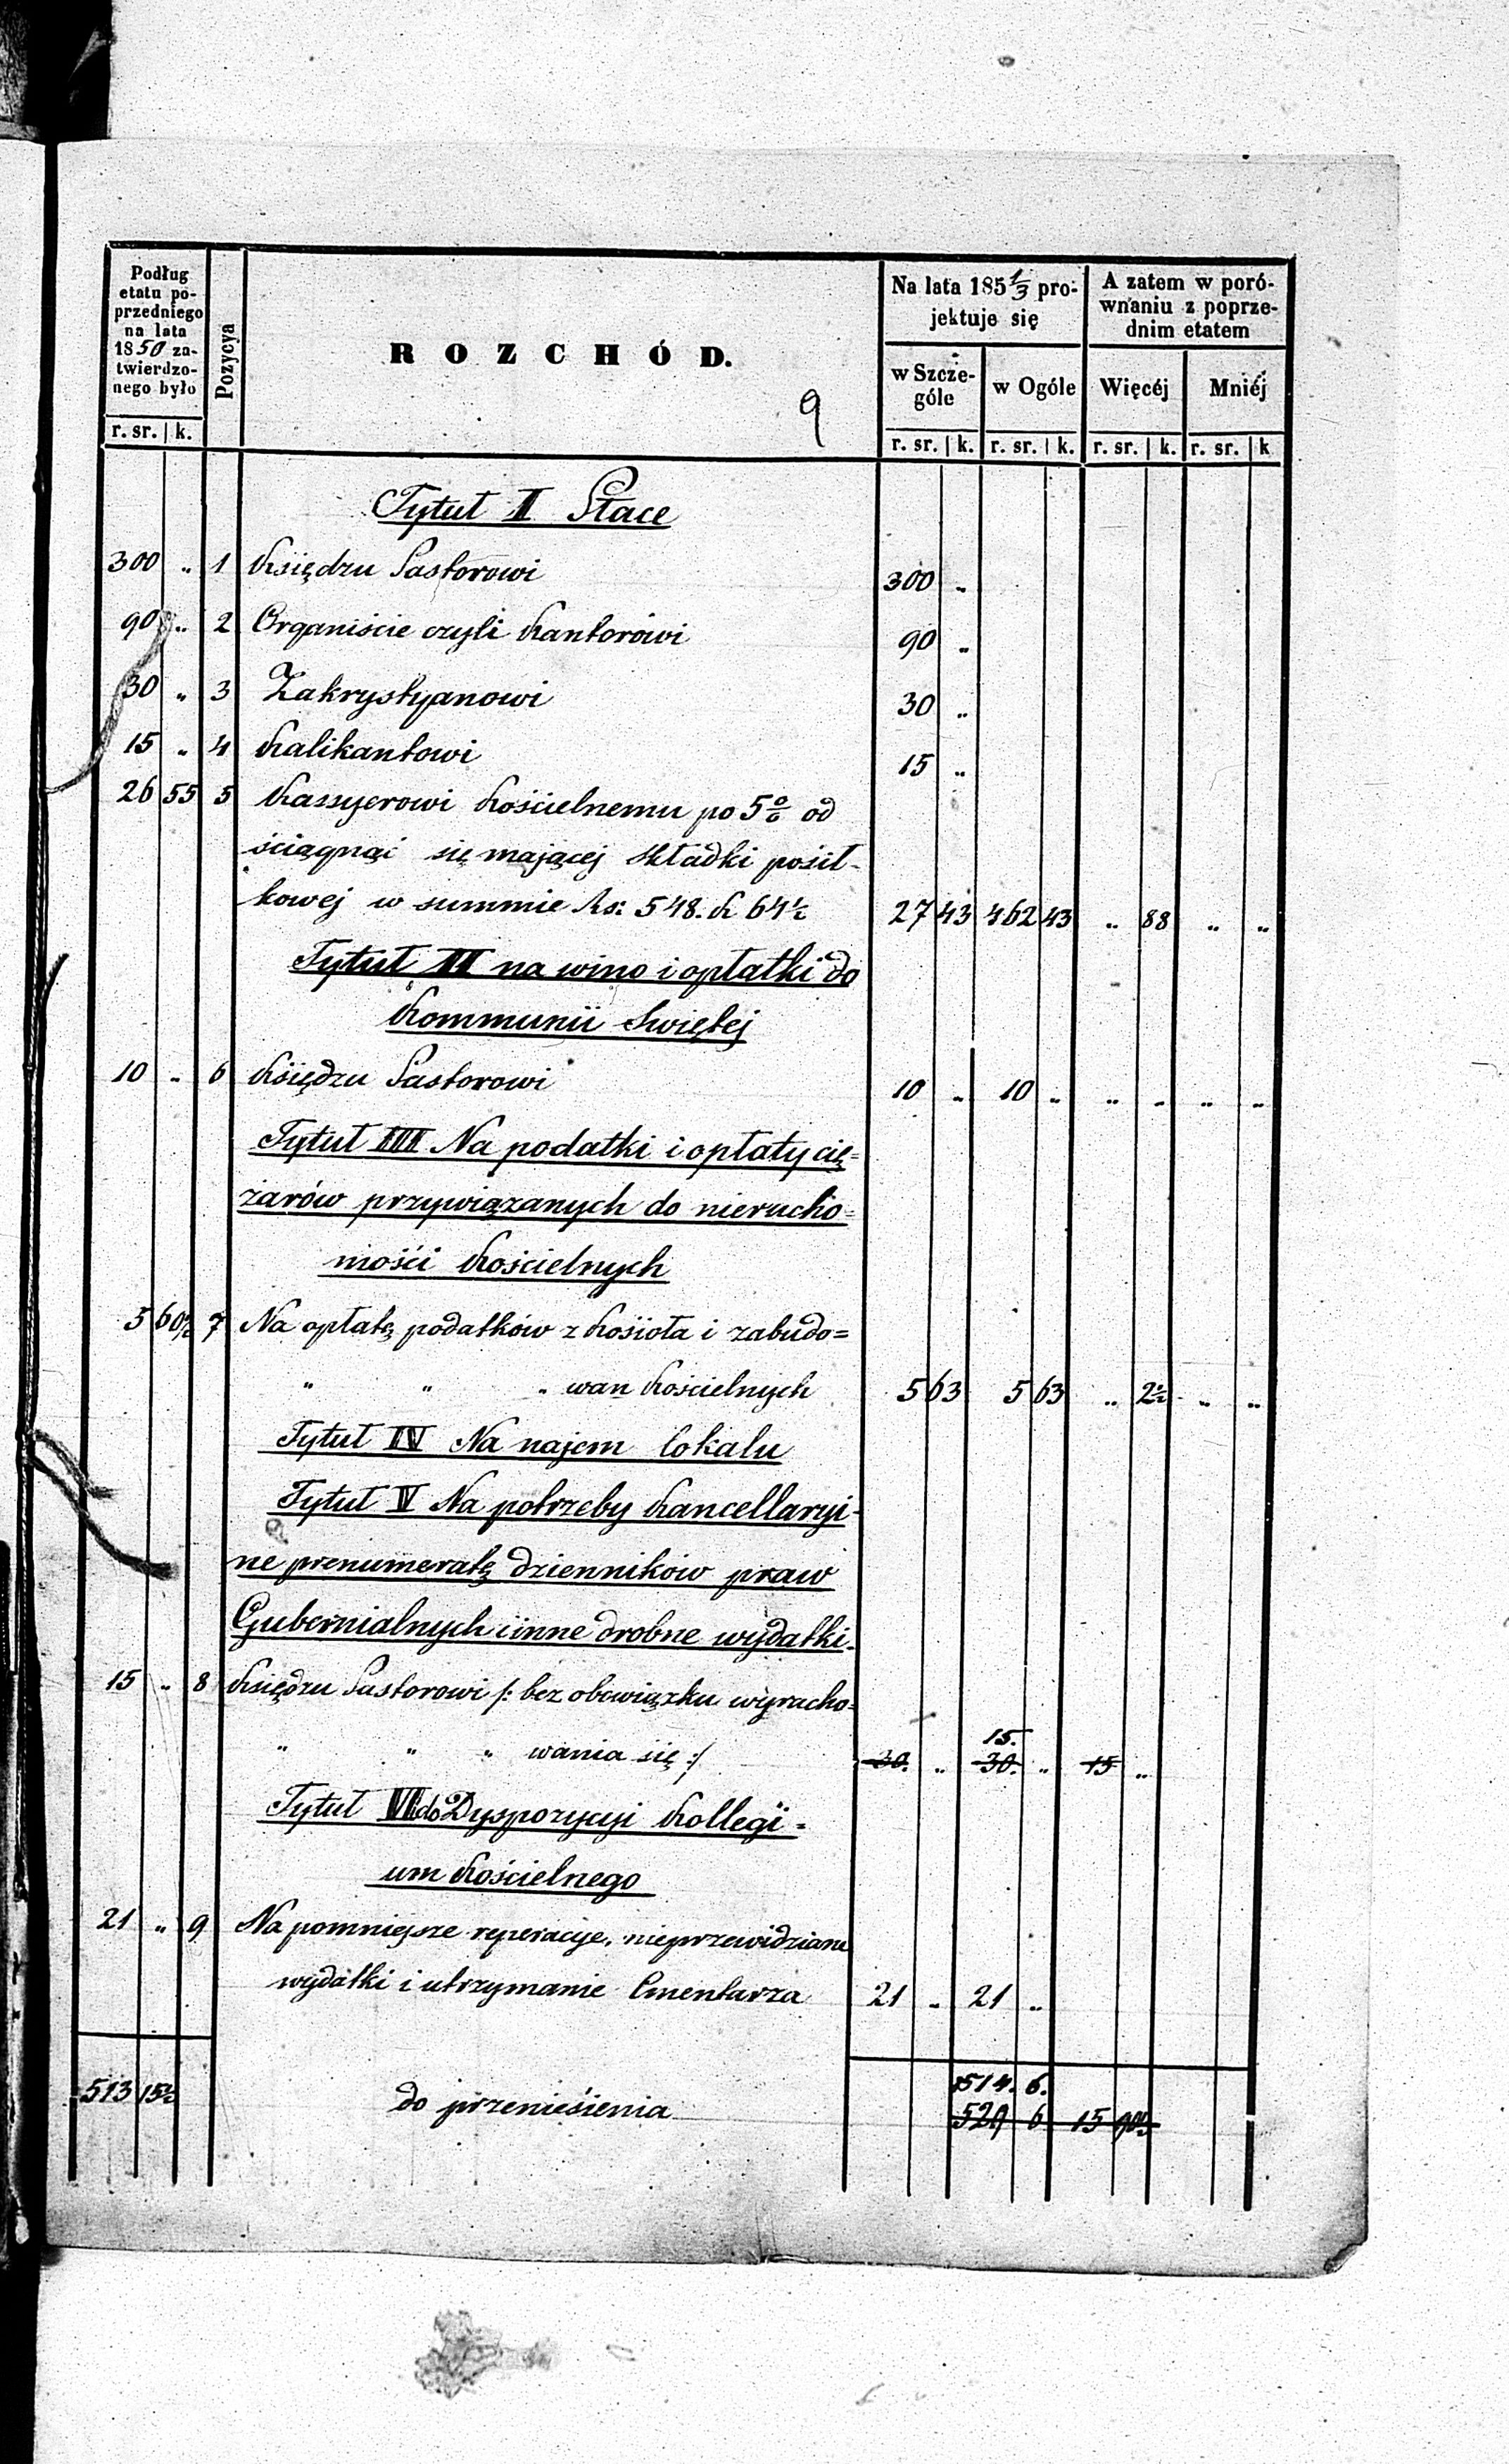 Podług
etatu po-
przedniego
na lata
1850 za-
twierdzo-
nego było
r. sr. | k.
Pozycya
ROZCHÓD.
9
Na lata 185 1/3 pro-
jektuje się
w Szcze-
góle
w Ogóle
r. sr. | k. r. sr. | k.
A zatem w poró-
wnaniu z poprze-
dnim etatem
Więcéj Mniéj
r. sr. | k. r. sr. | k
Tytuł I Płace
300 „ 1 Księdzu Pastorowi 300 „
90 „ 2 Organiście czyli Kantorowi 90 „
30 „ 3 Zakrystyanowi 30 „
15 „ 4 Kalikantowi 15 „
26 55 5 Kassyerowi Kościelnemu po 5% od
ściągnąć się mającej składki posił-
kowej w summie Rs: 548. k 64½ 27 43 462 43 „ 88 „ „
Tytuł II na wino i opłatki do
Kommunii Swiętej
10 „ 6 Księdzu Pastorowi 10 „ 10 „ „ „ „ „
Tytuł III Na podatki i opłaty cię=
żarów przywiązanych do nierucho=
mości Kościelnych
5 60½ 7 Na opłatę podatków z Kosioła i zabudo=
„ „ „ wan Kościelnych 5 63 5 63 „ 2½ „ „
Tytuł IV Na najem lokalu
Tytuł V Na potrzeby Kancellaryi-
ne prenumeratę dzienników praw
Gubernialnych i inne drobne wydatki.
15 „ 8 Księdzu Pastorowi /: bez obowiązku wyracho=
15.
„ „ „ wania się :/ 30. „ 30. „ 15 „
Tytuł VI do Dyspozycyi Kollegi=
um Kościelnego
21 „ 9 Na pomniejsze reperacye, nieprzewidziane
wydatki i utrzymanie Cmentarza 21 „ 21 „
514. 6.
513 15½ do przeniesienia 529 6 15 90½